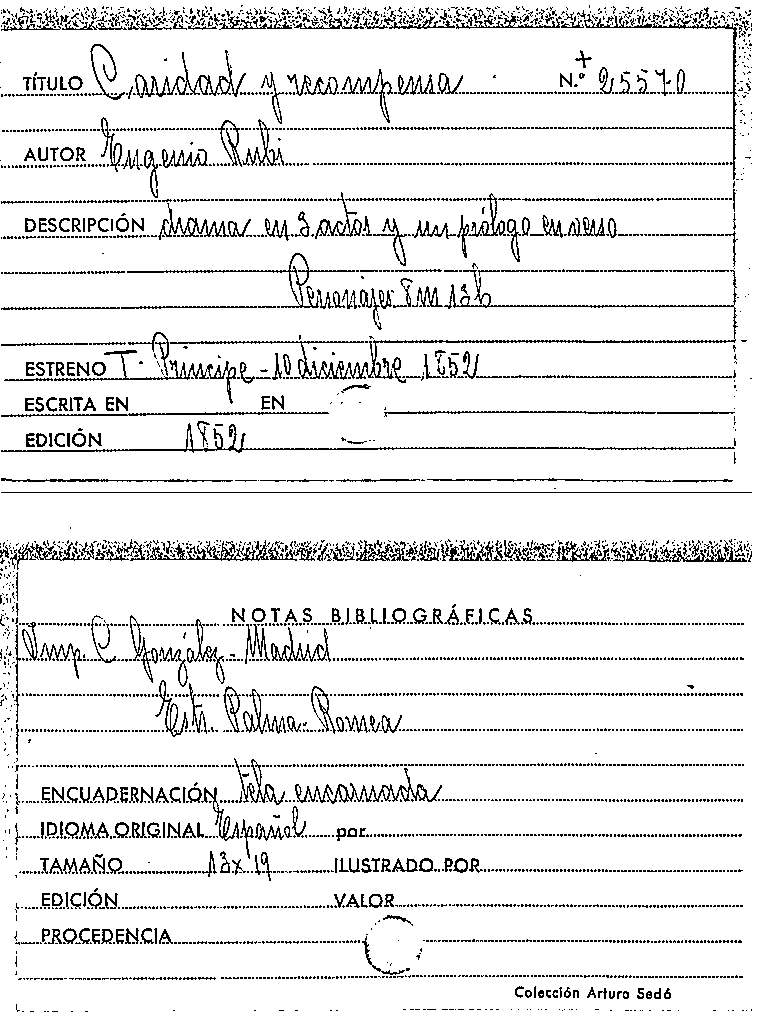 TÍTULO Caridad y recompensa N.º + 25570
AUTOR Eugenio Rubi
DESCRIPCIÓN drama en 3 actos y un prólogo en verso
Personajes 8m 13h
ESTRENO T. Principe - 10 diciembre 1852
ESCRITA EN EN
EDICIÓN 1852
NOTAS BIBLIOGRÁFICAS
Imp. C. González - Madrid
Estr. Palma - Romea
ENCUADERNACIÓN tela encarnada
IDIOMA ORIGINAL Español por
TAMAÑO 13x19 ILUSTRADO POR
EDICIÓN VALOR
PROCEDENCIA
Colección Arturo Sedó